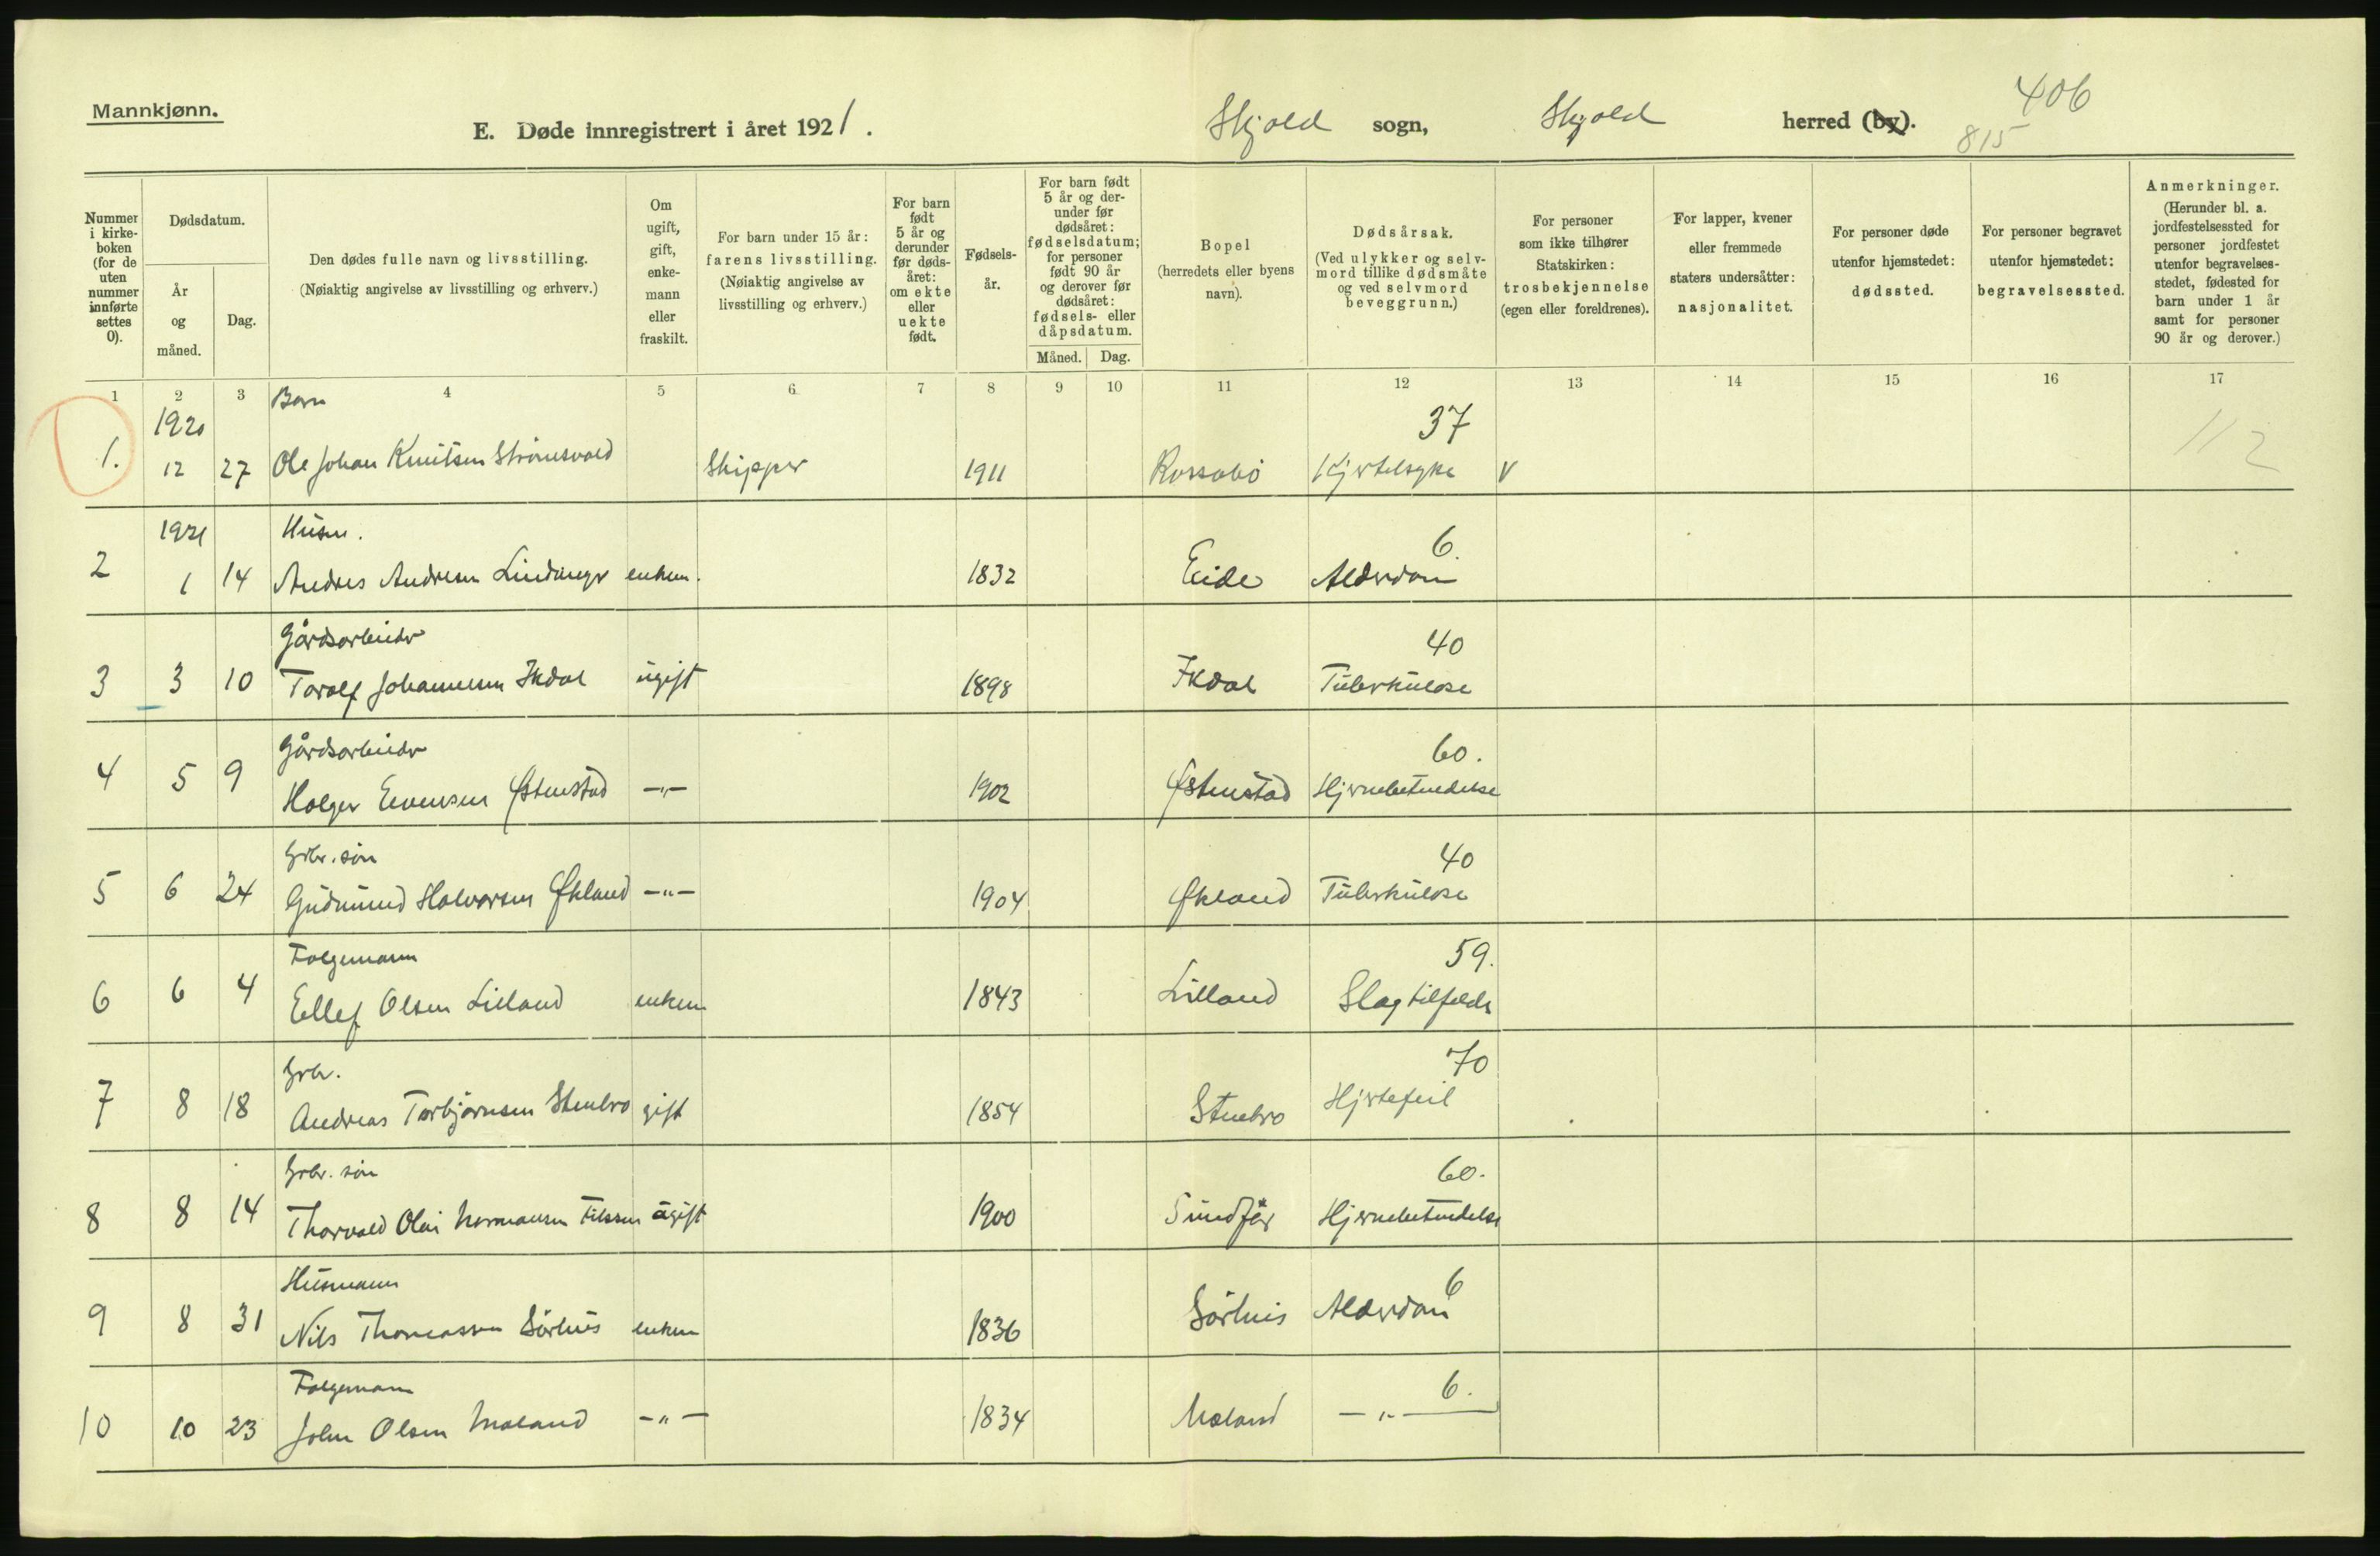 Mannkjønn.
E. Døde innregistrert i året 1921.
Skjold sogn, Skjold herred (by).
406
815
Nummer i kirkeboken (for de uten nummer innførte settes 0).
Dødsdatum.
År og måned.
Dag.
Den dødes fulle navn og livsstilling.
(Nøiaktig angivelse av livsstilling og erhverv.)
Om ugift, gift, enkemann eller fraskilt.
For barn under 15 år: farens livsstilling.
(Nøiaktig angivelse av livsstilling og erhverv.)
For barn født 5 år og derunder før dødsåret: om ekte eller uekte født.
Fødselsår.
For barn født 5 år og derunder før dødsåret: fødselsdatum; for personer født 90 år og derover før dødsåret: fødsels- eller dåpsdatum.
Måned. Dag.
Bopel
(herredets eller byens navn).
Dødsårsak.
(Ved ulykker og selvmord tillike dødsmåte og ved selvmord beveggrunn.)
For personer som ikke tilhører Statskirken: trosbekjennelse (egen eller foreldrenes).
For lapper, kvener eller fremmede staters undersåtter: nasjonalitet.
For personer døde utenfor hjemstedet: dødssted.
For personer begravet utenfor hjemstedet: begravelsessted.
Anmerkninger.
(Herunder bl. a. jordfestelsessted for personer jordfestet utenfor begravelsesstedet, fødested for barn under 1 år samt for personer 90 år og derover.)
1 2 3 4 5 6 7 8 9 10 11 12 13 14 15 16 17
1920 Barn 37
1. 12 27 Ole Johan Knutsen Strømsvold Skipper 1911 Rossabø Kjertelsyke V 112
1921 Husm. 6.
2 1 14 Andres Andresen enkem. 1832 Eide Alderdom
Gårdsarbeider 40
3 3 10 Torolf Johannesen Ikdal ugift 1898 Ikdal Tuberkulose
Gårdsarbeider 60.
4 5 9 Holger Evensen Østenstad —"— 1902 Østenstad Hjernebetendelse
Grbr. søn 40
5 6 24 Gudmund Halvorsen Økland —"— 1904 Økland Tuberkulose
Folgemann 59.
6 6 4 Ellef Olsen Lilland enkem 1843 Lilland Slagtilfelde
Grbr. 70
7 8 18 Andreas Torbjørnsen Stenbro gift 1854 Stenbro Hjertefeil
Grbr. søn 60.
8 8 14 Thorvald Olai Normansen ugift 1900 Sundfør Hjernebetendelse
Husmann 6
9 8 31 Nils Thomassen Sørhus enkem 1836 Sørhus Alderdom
Folgemann 6.
10 10 23 John Olsen Mæland —"— 1834 Mæland —"—